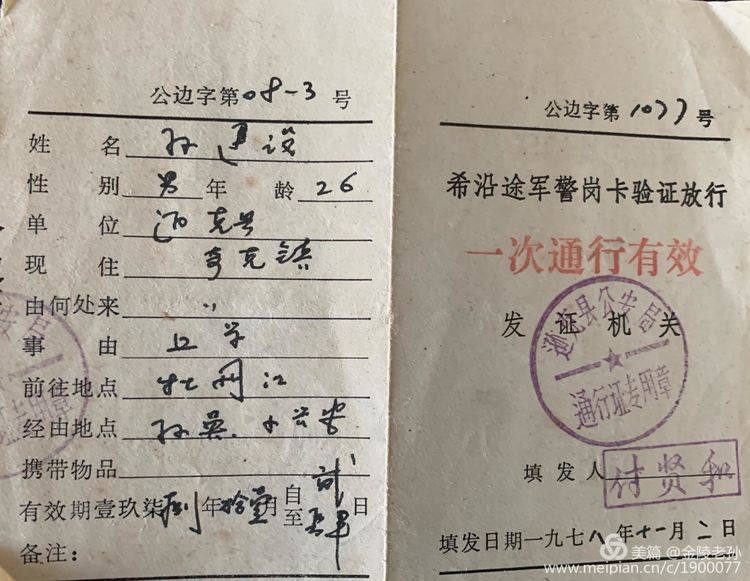 公边字第08-3号
姓名 孙建设
性别 男 年龄 26
单位 逊克县
现住 奇克镇
由何处来 〃
事由 上学
前往地点 牡丹江
经由地点 孙吴、小兴安
携带物品
有效期壹玖柒捌年拾壹月自至日
备注:
公边字第1077号
希沿途军警岗卡验证放行
一次通行有效
发证机关
逊克县公安局
通行证专用章
填发人 付贤和
填发日期一九七八年十一月二日
美篇 @金陵老孙
www.meipian.cn/c/1900077